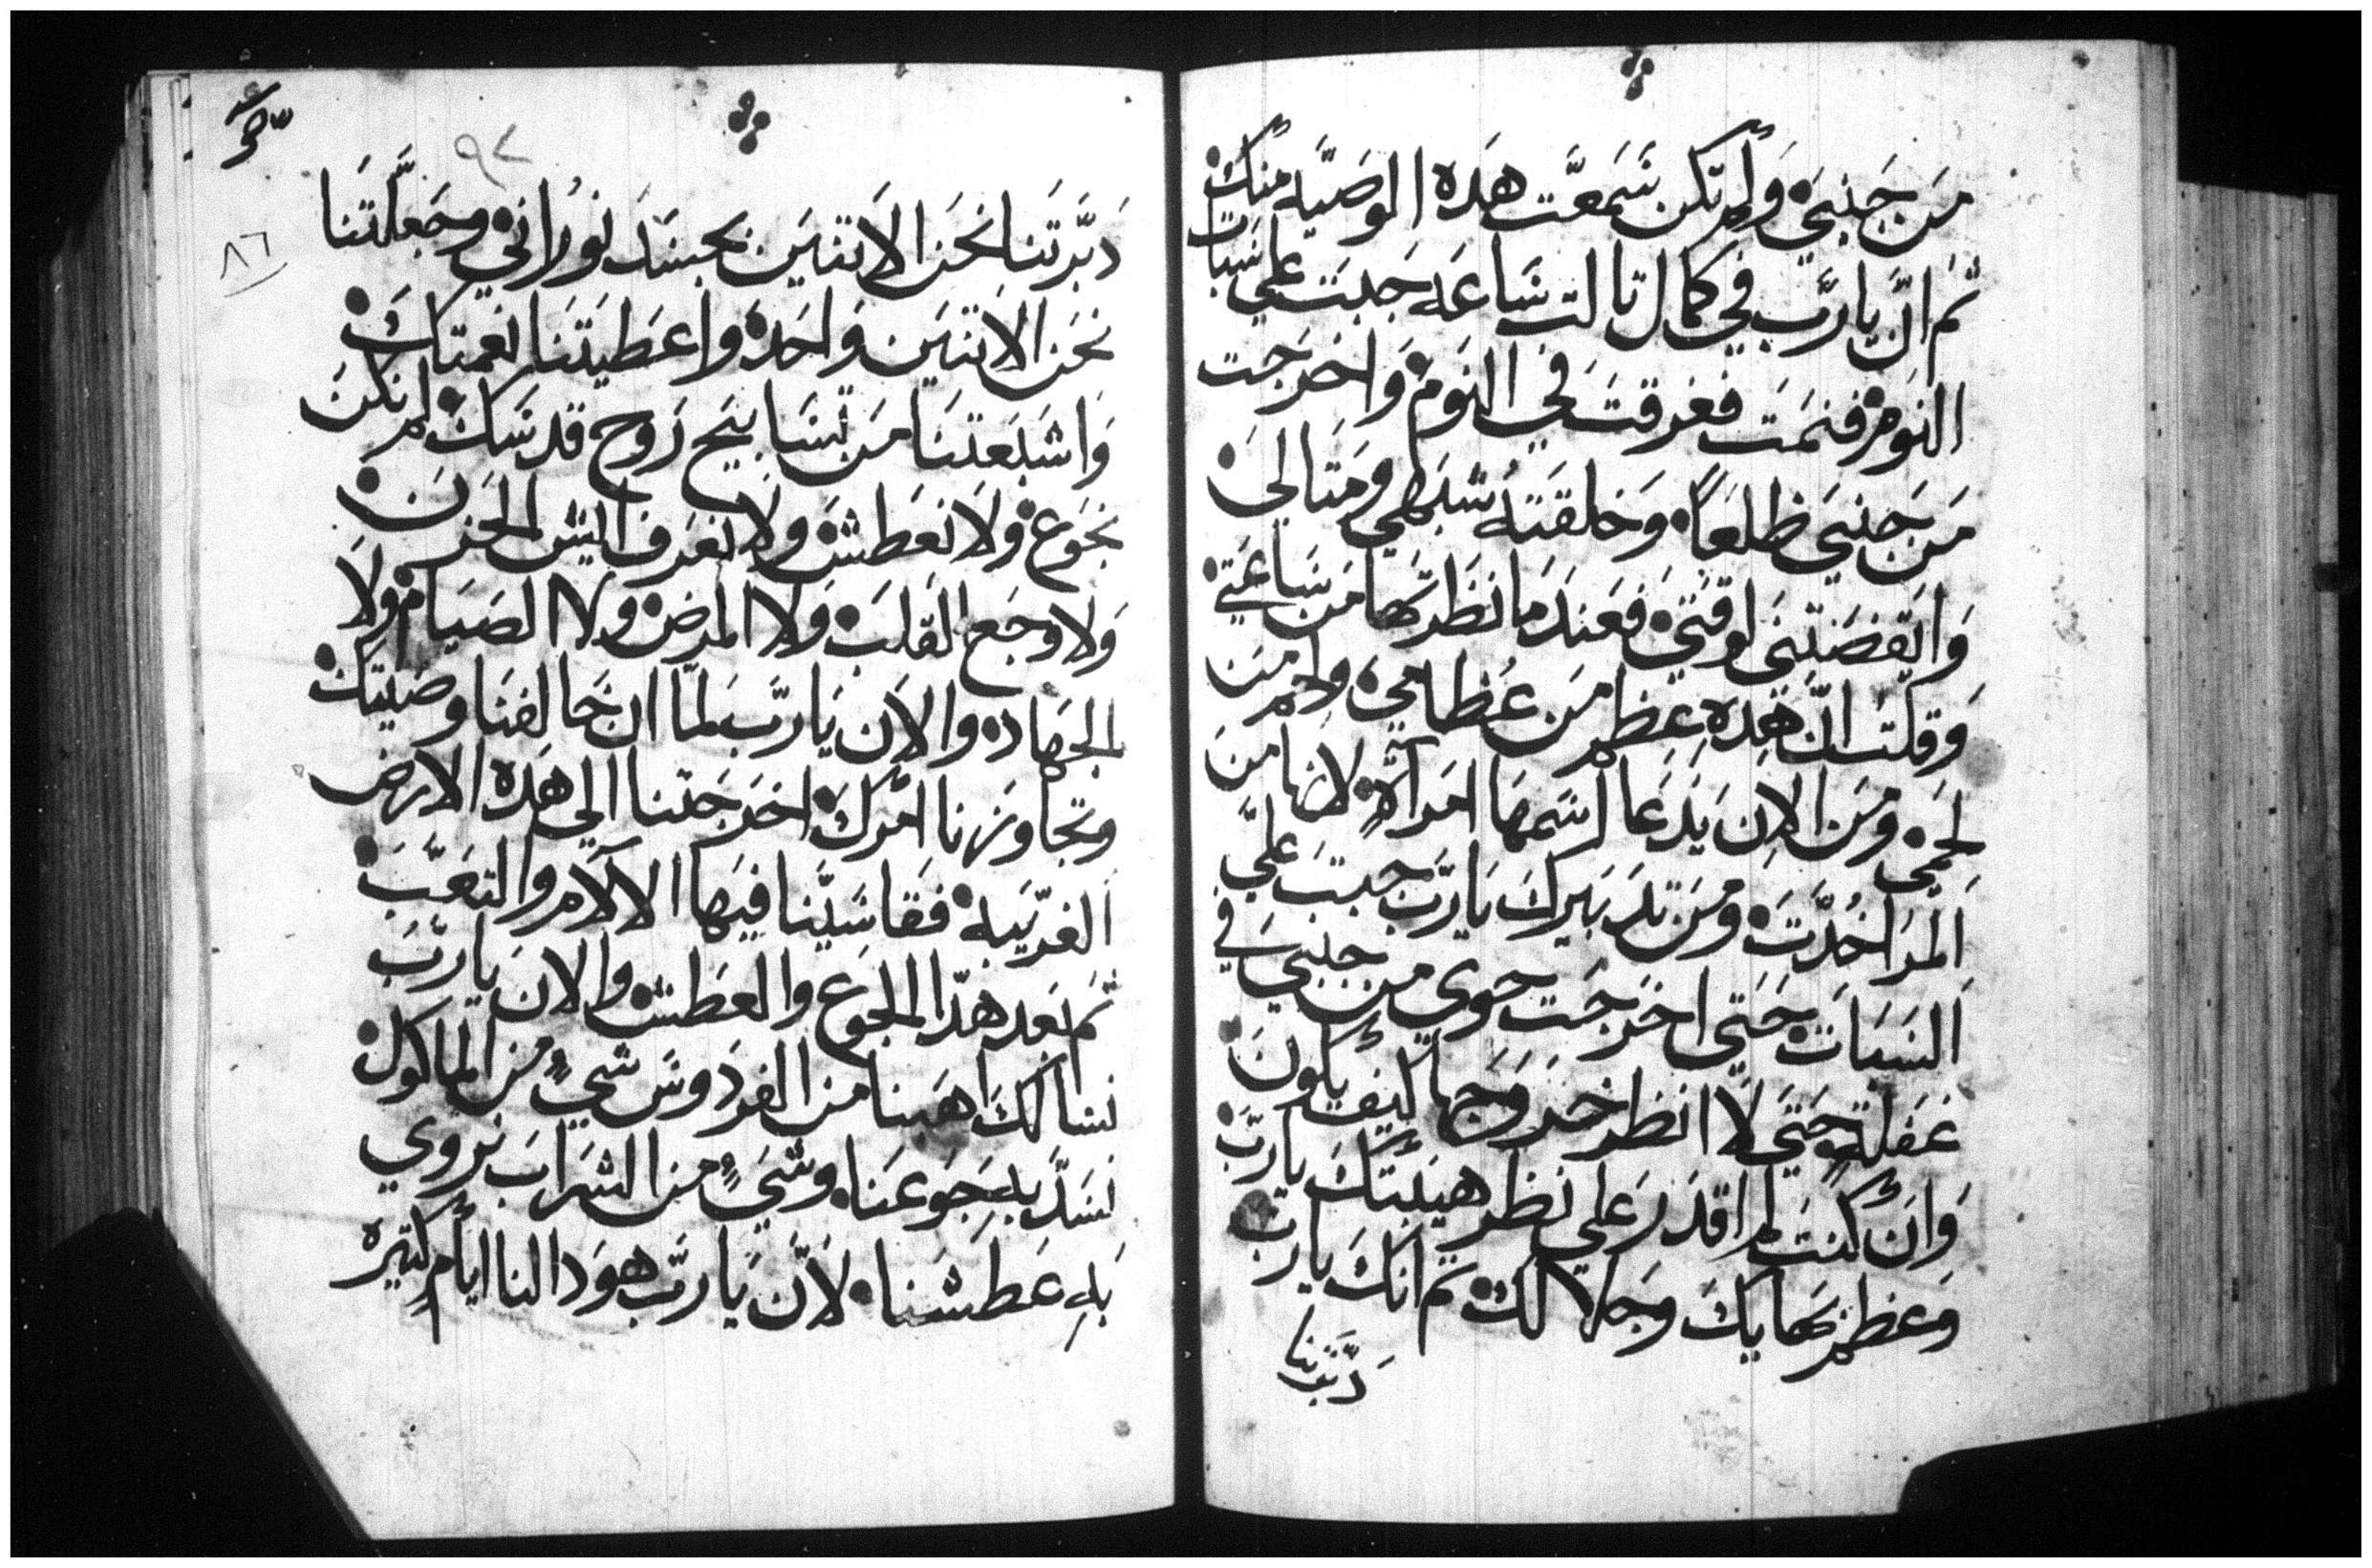 من جنبي ولم تكن سمعت هده الوصيه منك
تم ان يارب في كمال تالت ساعه جبت علي سبات
النوم فنمت فغرقت في النوم واخرجت
من جنبي ظلعاً وخلقته شبهي ومتالي
وايقضتني لوقتي فعندما نظرتها من ساعتي
وقلت ان هده عظم من عظامي ولحم من
لحمي ومن الان يدعا اسمها امراة لانها من
المرا اخدت ومن تدبيرك يارب جبت علي
السبات حتي اخرجت حوي من جنبي في
غفلة حتي لا انظر خروجها كيف يكون
وان كنت لم اقدر علي نظر هيبتك يارب
وعظم بهايك وجلالك تم انك يارب
دبرتنا
٩٢
٨٦
دبرتنا نحن الاتنين بجسد نوراني وجعلتنا
نحن الاتنين واحده واعطيتنا نعمتك
واشبعتنا من تسابيح روح قدسك لم نكن
نجوع ولا نعطش ولا نعرف اليش الحزن
ولا وجع القلب ولا المرض ولا الصيام ولا
الجهاده والان يارب لما ان خالفنا وصيتك
وتجاوزنا امرك اخرجتنا الي هده الارض
الغريبه فقاسينا فيها الالام والتعب
تم بعد هدا الجوع والعطش والان يارب
نسالك اهبنا من الفردوس شيٍ من الماكول
نسد به جوعنا وشيٍ من الشراب نروي
به عطشنا لان يارب هودا لنا ايام كتيره